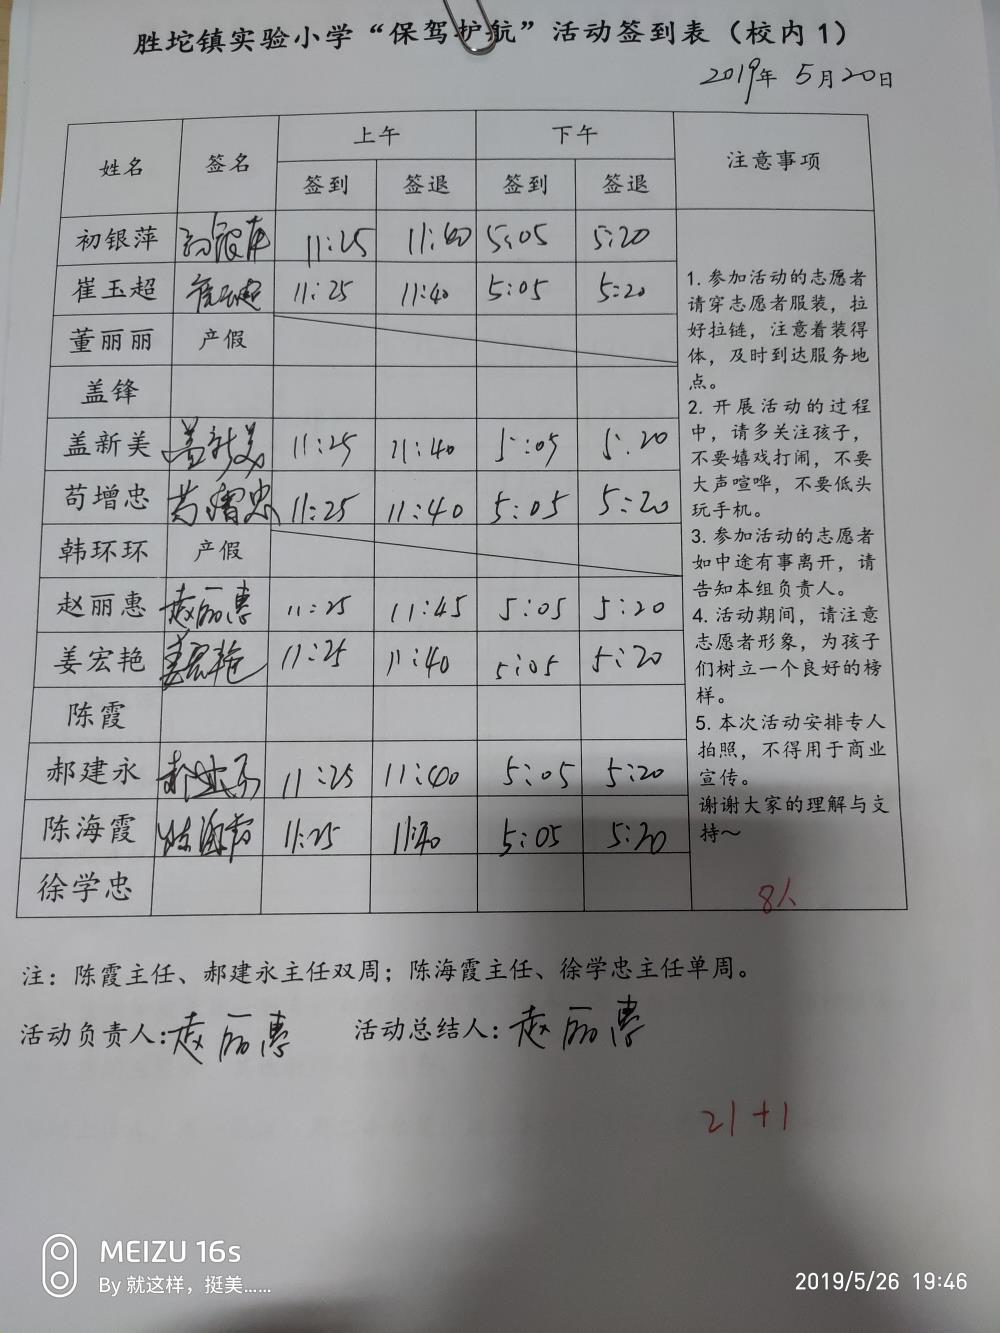 胜坨镇实验小学“保驾护航”活动签到表（校内1）
2019年 5月20日
姓名 签名 上午 下午 注意事项
签到 签退 签到 签退
初银萍 初银萍 11:25 11:40 5:05 5:20
崔玉超 崔玉超 11:25 11:40 5:05 5:20
董丽丽 产假
盖锋
盖新美 盖新美 11:25 11:40 5:05 5:20
苟增忠 苟增忠 11:25 11:40 5:05 5:20
韩环环 产假
赵丽惠 赵丽惠 11:25 11:45 5:05 5:20
姜宏艳 姜宏艳 11:25 11:40 5:05 5:20
陈霞
郝建永 郝建永 11:25 11:40 5:05 5:20
陈海霞 陈海霞 11:25 11:40 5:05 5:20
徐学忠
1. 参加活动的志愿者
请穿志愿者服装，拉
好拉链，注意着装得
体，及时到达服务地
点。
2. 开展活动的过程
中，请多关注孩子，
不要嬉戏打闹，不要
大声喧哗，不要低头
玩手机。
3. 参加活动的志愿者
如中途有事离开，请
告知本组负责人。
4. 活动期间，请注意
志愿者形象，为孩子
们树立一个良好的榜
样。
5. 本次活动安排专人
拍照，不得用于商业
宣传。
谢谢大家的理解与支
持～
8人
注：陈霞主任、郝建永主任双周；陈海霞主任、徐学忠主任单周。
活动负责人：赵丽惠 活动总结人：赵丽惠
21+1
MEIZU 16s
By 就这样，挺美......
2019/5/26 19:46